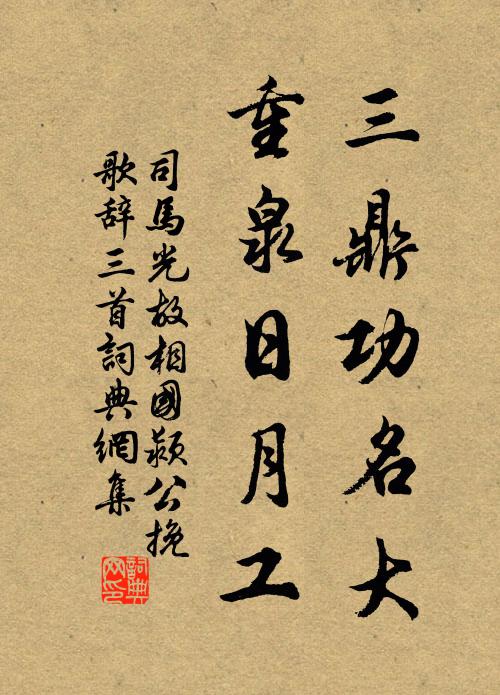 三鼎功名大
重泉日月工
司馬光故相國潁公挽
歌辞三首詞典網集
詞典
网印